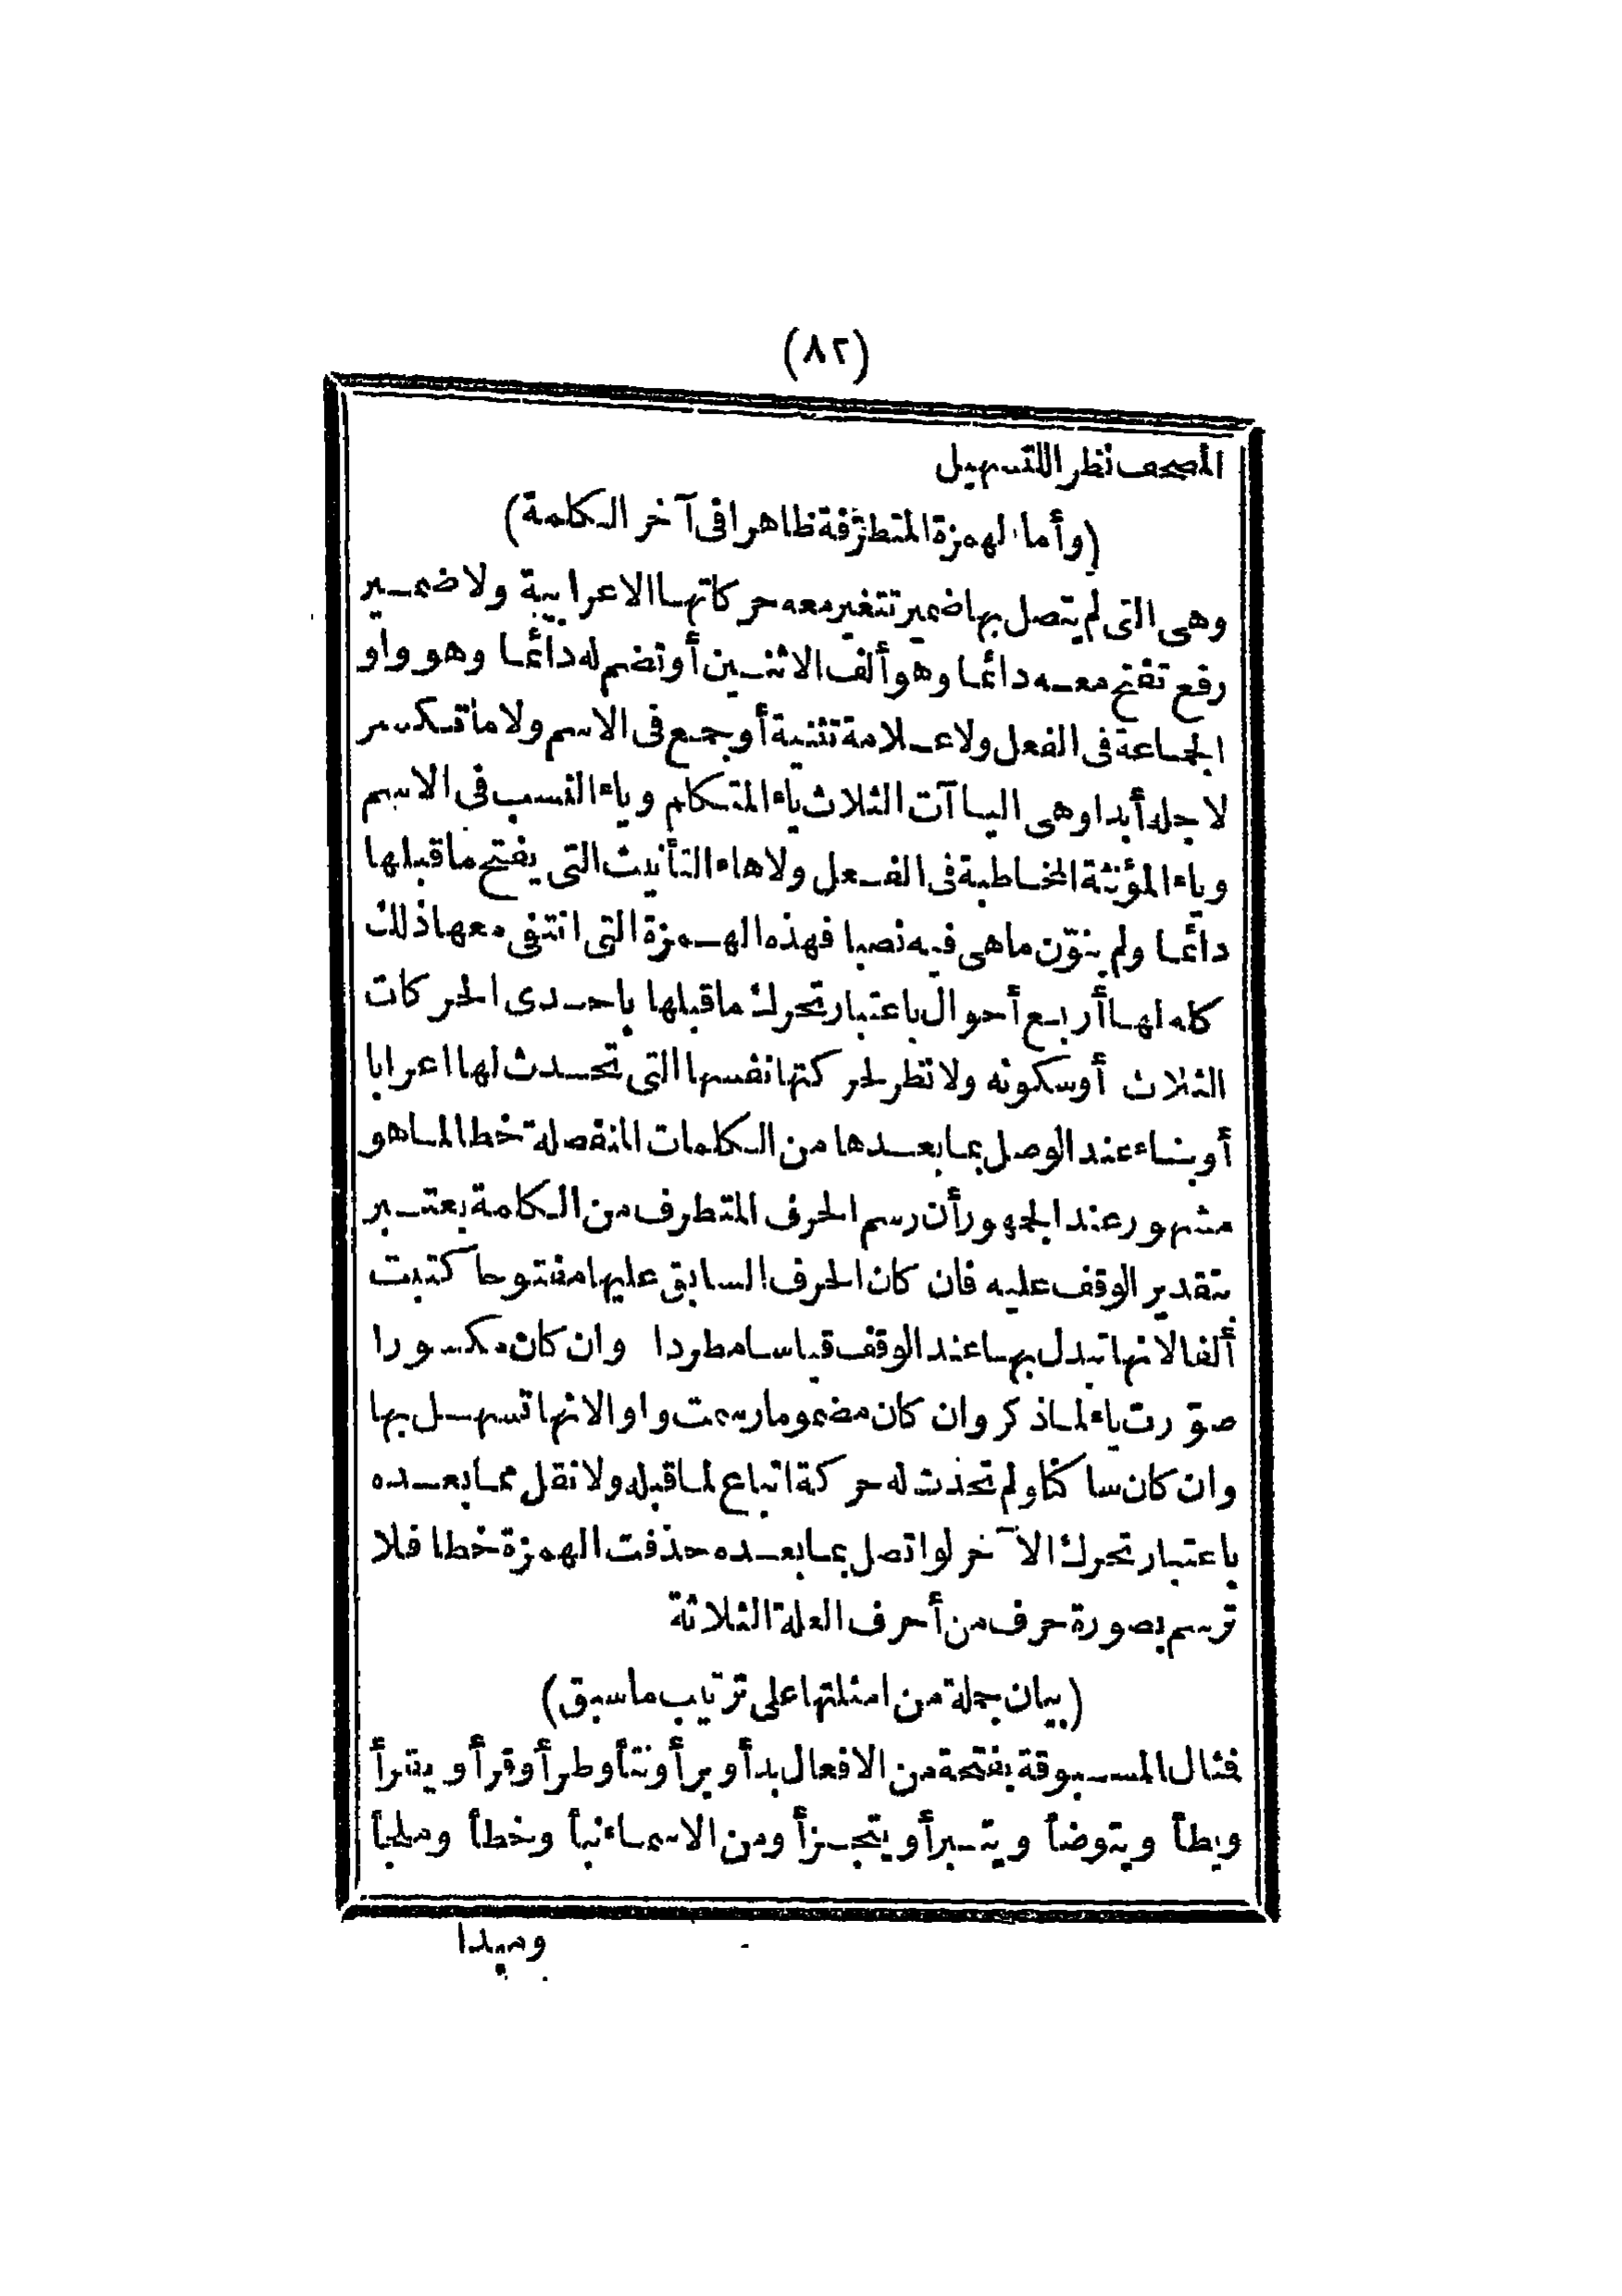 (٨٢)
المصحف نظرا للتسهيل
(وأما الهمزة المتطرّفة ظاهرا فى آخر الكلمة)
وهى التى لم يتصل بها ضمير تتغير معه حركاتها الاعرابية ولا ضمير
رفع تفتح معه دائما وهو ألف الاثنين أو تضم له دائما وهو واو
الجماعة فى الفعل ولا علامة تثنية أو جمع فى الاسم ولا ما تكسر
لاجله أبدا وهى الياآت الثلاث ياء المتكلم وياء النسب فى الاسم
وياء المؤنثة المخاطبة فى الفعل ولا هاء التأنيث التى يفتح ما قبلها
دائما ولم ينوّن ما هى فيه نصبا فهذه الهمزة التى انتفى معها ذلك
كله لها أربع أحوال باعتبار تحرك ما قبلها باحدى الحركات
الثلاث أو سكونه ولا نظر لحركتها نفسها التى تحدث لها اعرابا
أو بناء عند الوصل بما بعدها من الكلمات المنفصلة خطا لما هو
مشهور عند الجمهور أن رسم الحرف المتطرف من الكلمة يعتبر
بتقدير الوقف عليه فان كان الحرف السابق عليها مفتوحا كتبت
ألفا لانها تبدل بها عند الوقف قياسا مطردا وان كان مكسورا
صوّرت ياء لما ذكر وان كان مضموما رسمت واوا لانها تسهل بها
وان كان ساكنا ولم تحدث له حركة اتباع لما قبله ولا نقل مما بعده
باعتبار تحرك الآخر لو اتصل بما بعده حذفت الهمزة خطا فلا
ترسم بصورة حرف من أحرف العلة الثلاثة
(بيان جملة من امثلتها على ترتيب ما سبق)
فمثال المسبوقة بفتحة من الافعال بدأ وبرأ ونتأ وطرأ وقرأ ويقرأ
ويطأ ويتوضأ ويتبرأ ويتجزأ ومن الاسماء نبأ وخطأ وملجأ
ومبدا